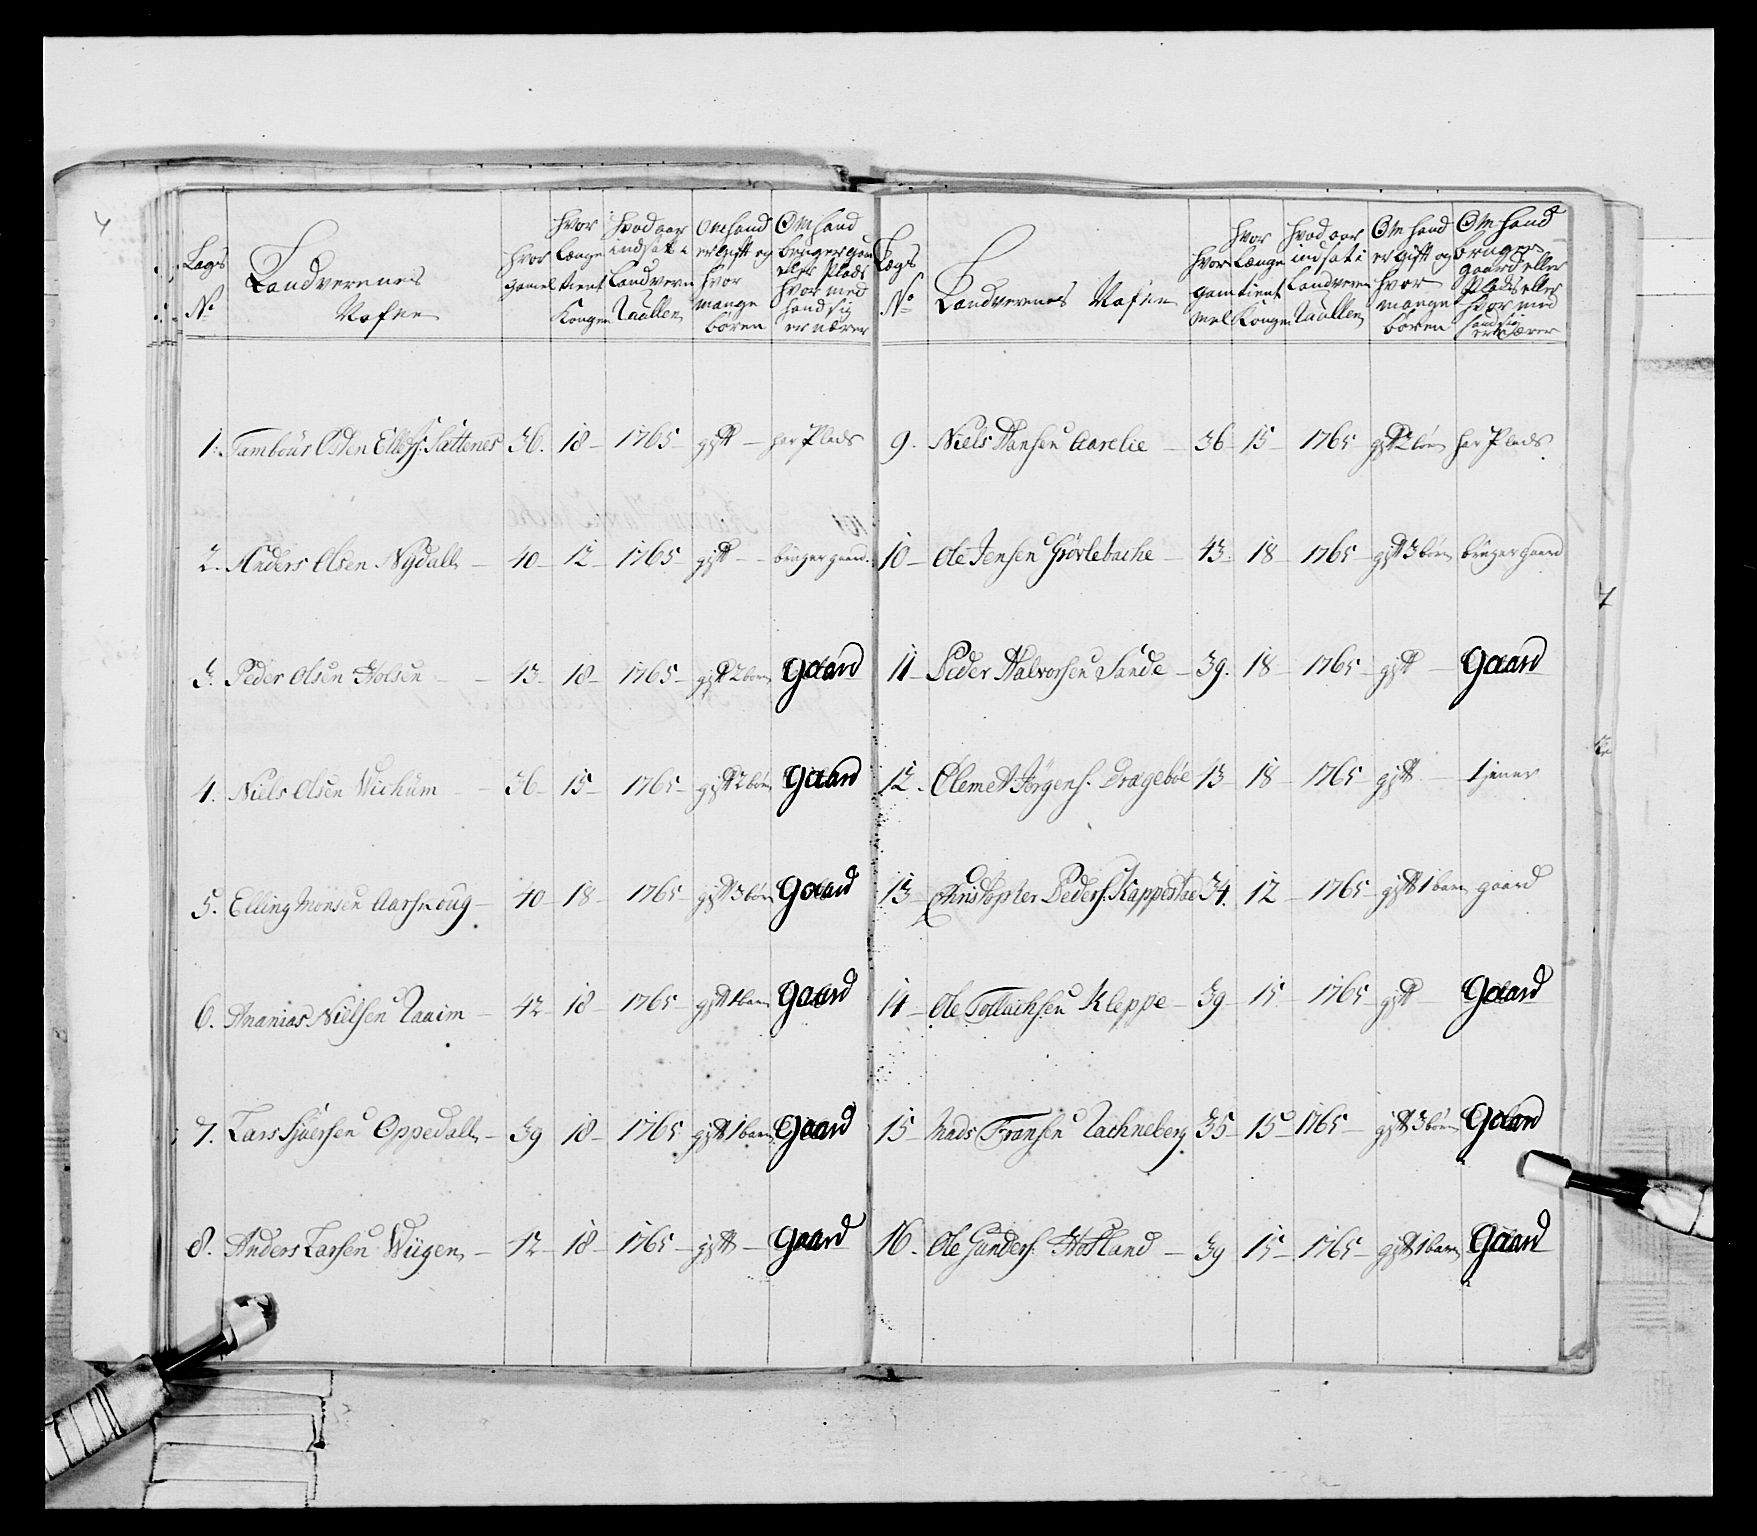 Lægs No | Landvernes Nafne | hvor gamel | hvor Længe tient Kongen | hvad aar indsat i Landvern Rullen | Om hand er gift og hvor mange bören | Om hand bruger gaard eller Plads hvor med hand sig ernærer
1. Tambour Osten Ellefs: Sættenes 36. 18 – 1765 – gift – har Plads
2. Anders Olsen Nÿdall – 40 – 12 – 1765 – gift – bruger gaard.
3. Peder Olsen Holsen – 43 – 18 – 1765 – gift 2 börn Gaard
4. Niels Olsen Wichum – 36 – 15 – 1765 – gift 2 börn Gaard
5. Elling Monsen Aarskoug – 40 – 18 – 1765 – gift 3 börn Gaard
6. Ananias Nielsen Raaim – 42 – 18 – 1765 – gift 1 barn Gaard
7. Lars Siursen Oppedall – 39 – 18 – 1765 gift 1 barn Gaard
8. Anders Larsen Wiigen – 42 – 18 – 1765 – gift – Gaard
Lægs No | Landvernes Nafne | hvor gammel | hvor Længe tient Kongen | hvad aar indsat i Landvern Rullen | Om hand er gift og hvor mange bören | Om hand bruger gaard eller Plads eller hvor med hand sig ernærer
9. Niels Hansen Aarelie – 36 – 15 – 1765 gift 2 börn har Plads
10 – Ole Jensen Hörlebache – 43. 18 – 1765 gift 3 börn bruger gaard
11 – Peder Halvorsen Sande – 39. 18 – 1765 – gift – Gaard
12. Clemet Jörgens. Drageböe 43 – 18 – 1765 – gift – tjener
13 – Christopher Peders: Kappestae 34. 12 – 1765 – gift 1 barn gaard
14 – Ole Torlachsen Kleppe – 39 – 15 – 1765 gift Gaard
15 – Mads Fransen Rachneberg 35 – 15 – 1765 – gift 3 börn Gaard
16. Ole Gunders: Hofland – 39 – 15 – 1765 – gift 1 barn Gaard